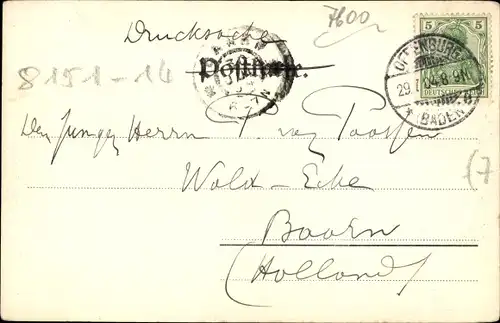 7600
Drucksache
5
Postkarte.
8151-14
OFFENBURG
29.
8-9N
DEUTSCHES REICH
(BADEN)
Den Jungen Herrn
(7
Wald-Ecke
Baarn
(Holland)